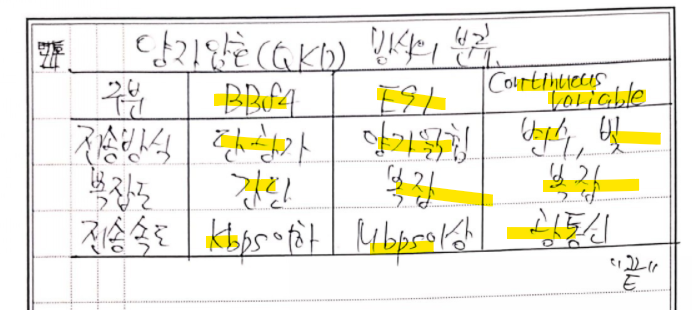 양자암호(QKD) 방식의 분류.
구분 BB84 E91 Continuous Variable
전송방식 단일광자 양자얽힘 변수, 빛
복잡도 간단 복잡 복잡
전송속도 Kbps이하 Mbps이상 광통신
"끝"